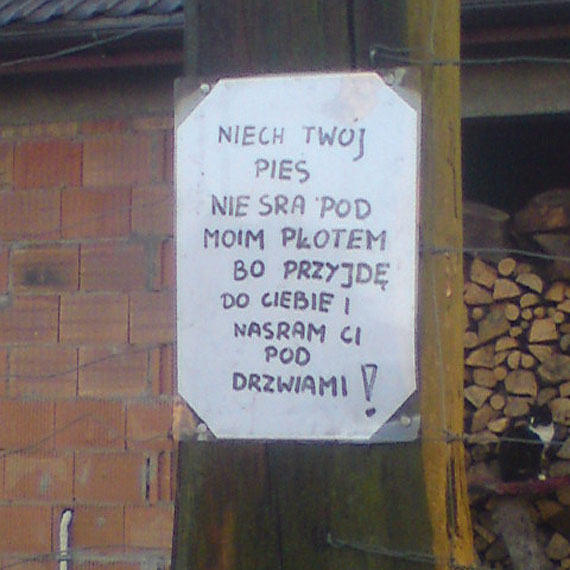 NIECH TWOJ
PIES
NIE SRA POD
MOIM PŁOTEM
BO PRZYJDĘ
DO CIEBIE I
NASRAM CI
POD
DRZWIAMI!